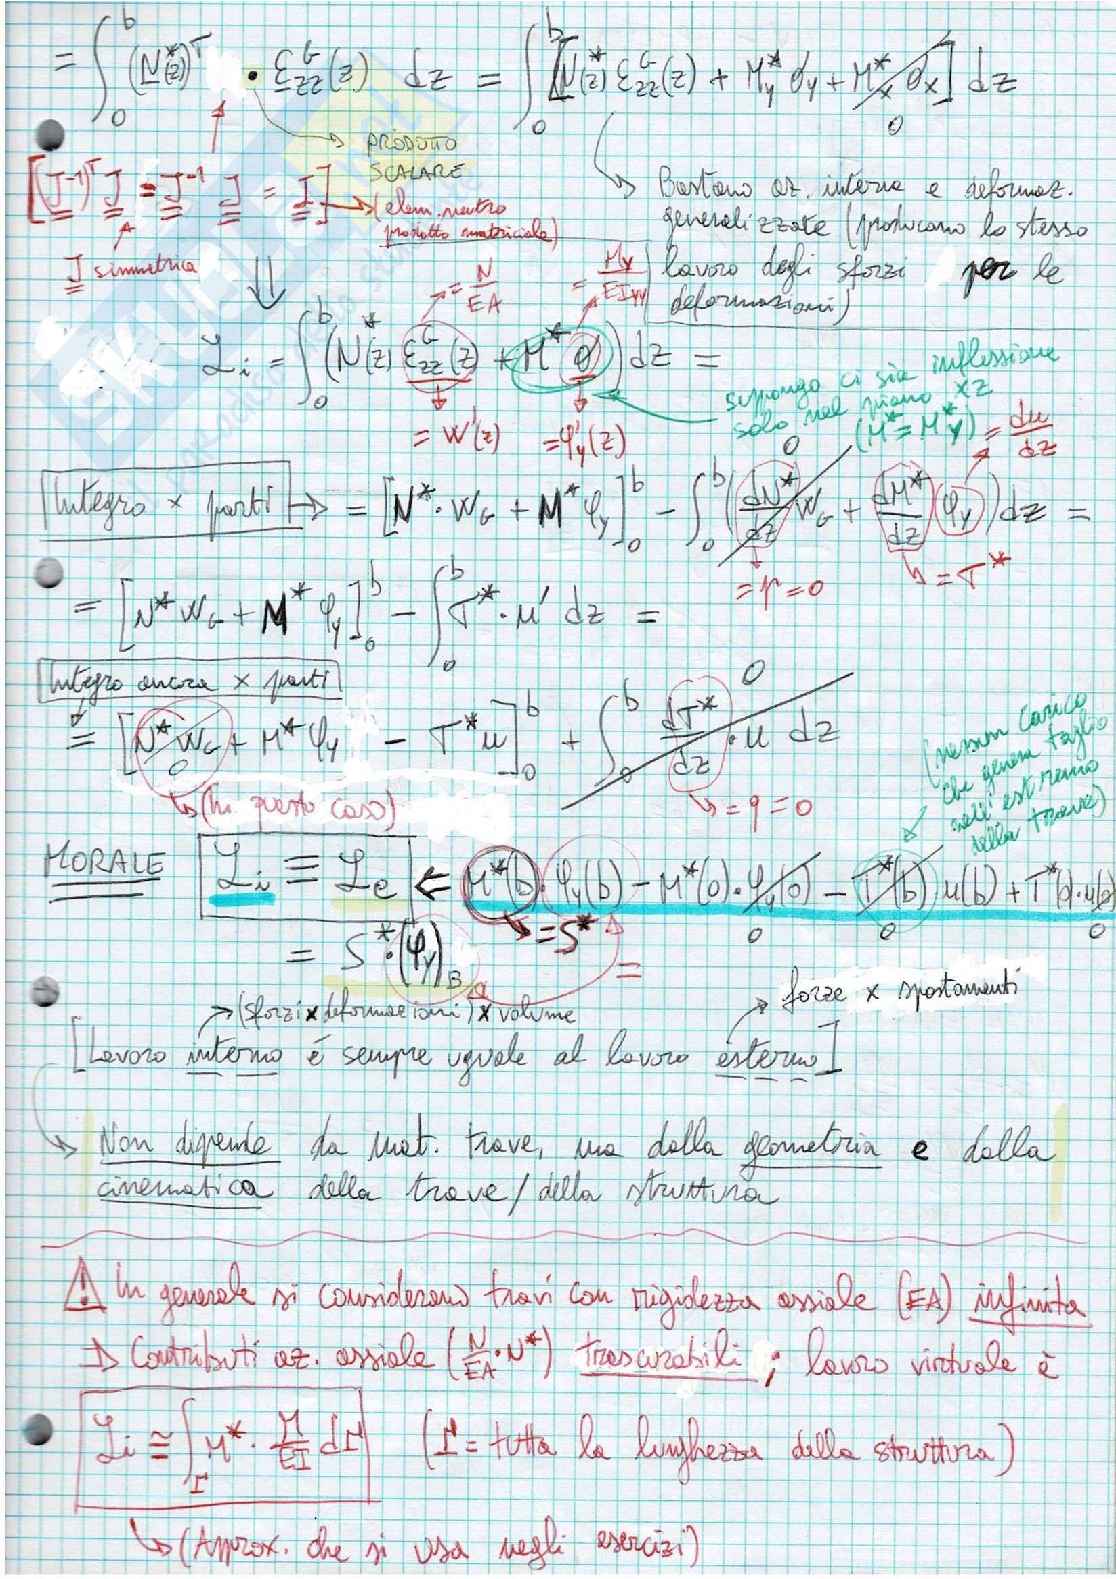 = ∫₀ᵇ (N*(z))ᵀ • ε_zz^G(z) dz = ∫₀ᵇ [N*(z) ε_zz^G(z) + M_y* θ_y + M_x* θ_x] dz
0
→ PRODOTTO SCALARE
[(J⁻¹)ᵀ J = J⁻¹ J = I] → (elem. neutro prodotto matriciale)
J simmetria
→ Bastano az. interna e deformaz.
generalizzate (producano lo stesso
lavoro degli sforzi per le
deformazioni)
= N/EA
= M_y/EI_yy
ℒi = ∫₀ᵇ (N*(z) ε_zz^G(z) + M* θ) dz =
= W'(z) = φ'_y(z)
suppongo ci sia inflessione
solo nel piano xz
(M* = M*_y)
= du/dz
Integro × parti → = [N* · W_G + M* φ_y]₀ᵇ − ∫₀ᵇ (dN*/dz W_G + dM*/dz φ_y) dz =
0
= p = 0
= T*
= [N* W_G + M* φ_y]₀ᵇ − ∫₀ᵇ T* · u' dz =
Integro ancora × parti
= [N* W_G + M* φ_y − T* u]₀ᵇ + ∫₀ᵇ dT*/dz · u dz
0
0
→ (In questo caso)
= q = 0
(nessun carico
che genera taglio
nell'estremo
della trave)
MORALE ℒi ≡ ℒe ⇐ M*(b) · φ_y(b) − M*(0) · φ_y(0) − T*(b) u(b) + T*(0) · u(0)
0 0 0
= S*
= S* · (φ_y)_B
=
→ (sforzi × deformazioni) × volume
→ forze × spostamenti
[Lavoro interno é sempre uguale al lavoro esterno]
→ Non dipende da mat. trave, ma dalla geometria e dalla
cinematica della trave / della struttura
⚠ In generale si considerano travi con rigidezza assiale (EA) infinita
⇒ Contributi az. assiale (N/EA · N*) trascurabili ; lavoro virtuale è
ℒi ≅ ∫_Γ M* · M/EI dΓ (Γ = tutta la lunghezza della struttura)
→ (Approx. che si usa negli esercizi)